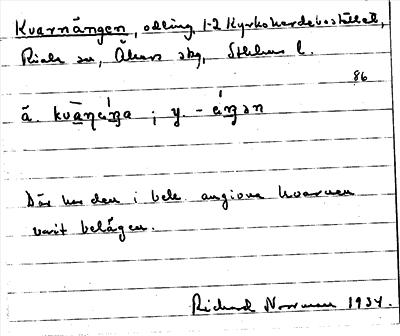 Kvarnängen, odling, 1-2 Kyrkoherdebostället,
Riala sn, Åkers skg, Sthlms l.
86
ä. kvàṇεŋa ; y. - εŋən
Där har den i bek. angivna kvarnen
varit belägen.
Richard Norrman 1934.